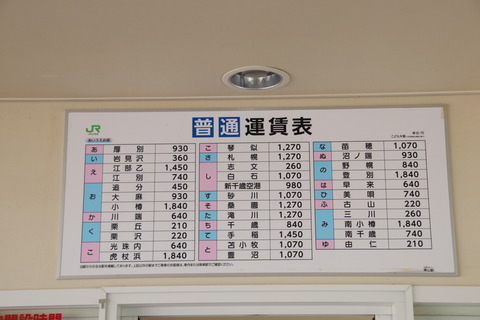 JR
普通運賃表
あいうえお順
あ 厚別 930
い 岩見沢 360
え 江部乙 1,450
江別 740
お 追分 450
大麻 930
小樽 1,840
か 川端 640
く 栗丘 210
栗沢 220
こ 光珠内 640
虎杖浜 1,840
こ 琴似 1,270
さ 札幌 1,270
し 志文 260
白石 1,070
新千歳空港 980
す 砂川 1,070
そ 桑園 1,270
た 滝川 1,270
ち 千歳 840
て 手稲 1,450
と 苫小牧 1,070
豊沼 1,070
な 苗穂 1,070
ぬ 沼ノ端 930
の 野幌 840
登別 1,840
は 早来 640
ひ 美唄 740
ふ 古山 220
み 三川 260
南小樽 1,840
南千歳 740
ゆ 由仁 210